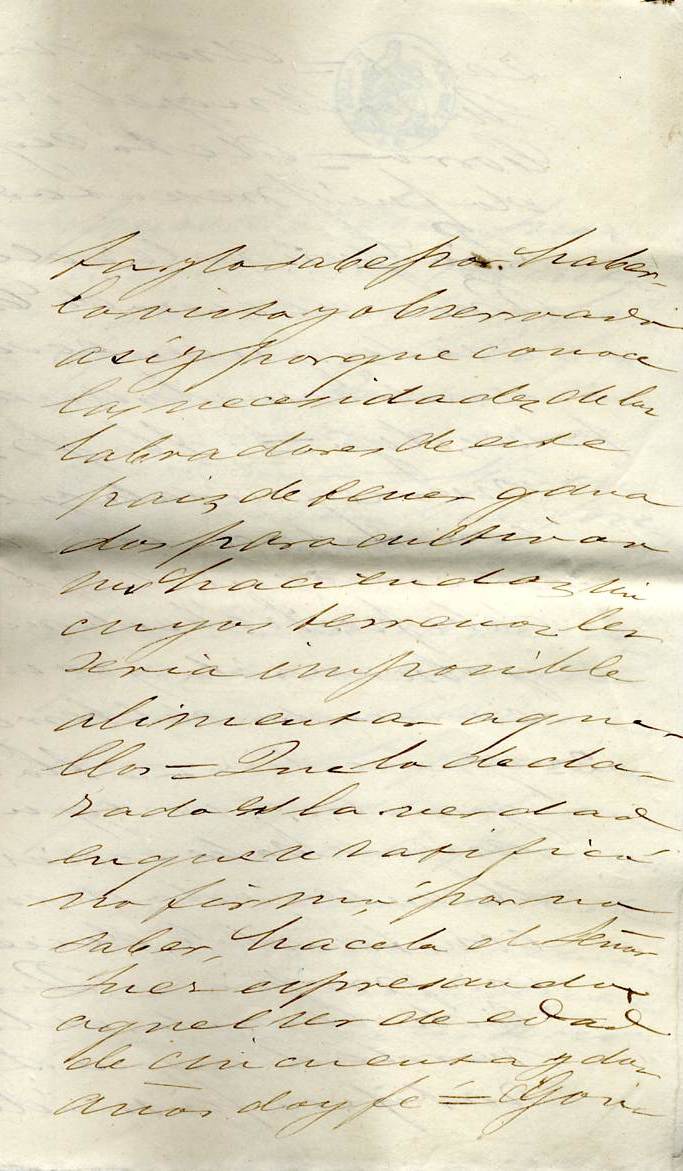 ta y lo sabe por haber-
lo visto y observado
asi y porque conoce
las necesidades de los
labradores de este
pais de tener gana
dos para cultivar
sus haciendas sin
cuyos terrenos les
seria imposible
alimentar aque-
llos = Que lo decla-
rado es la verdad
en que se ratificó
no firmó por no
saber, hácelo el Señor
Juez expresando
aquel ser de edad
de cincuenta y dos
años doy fé =